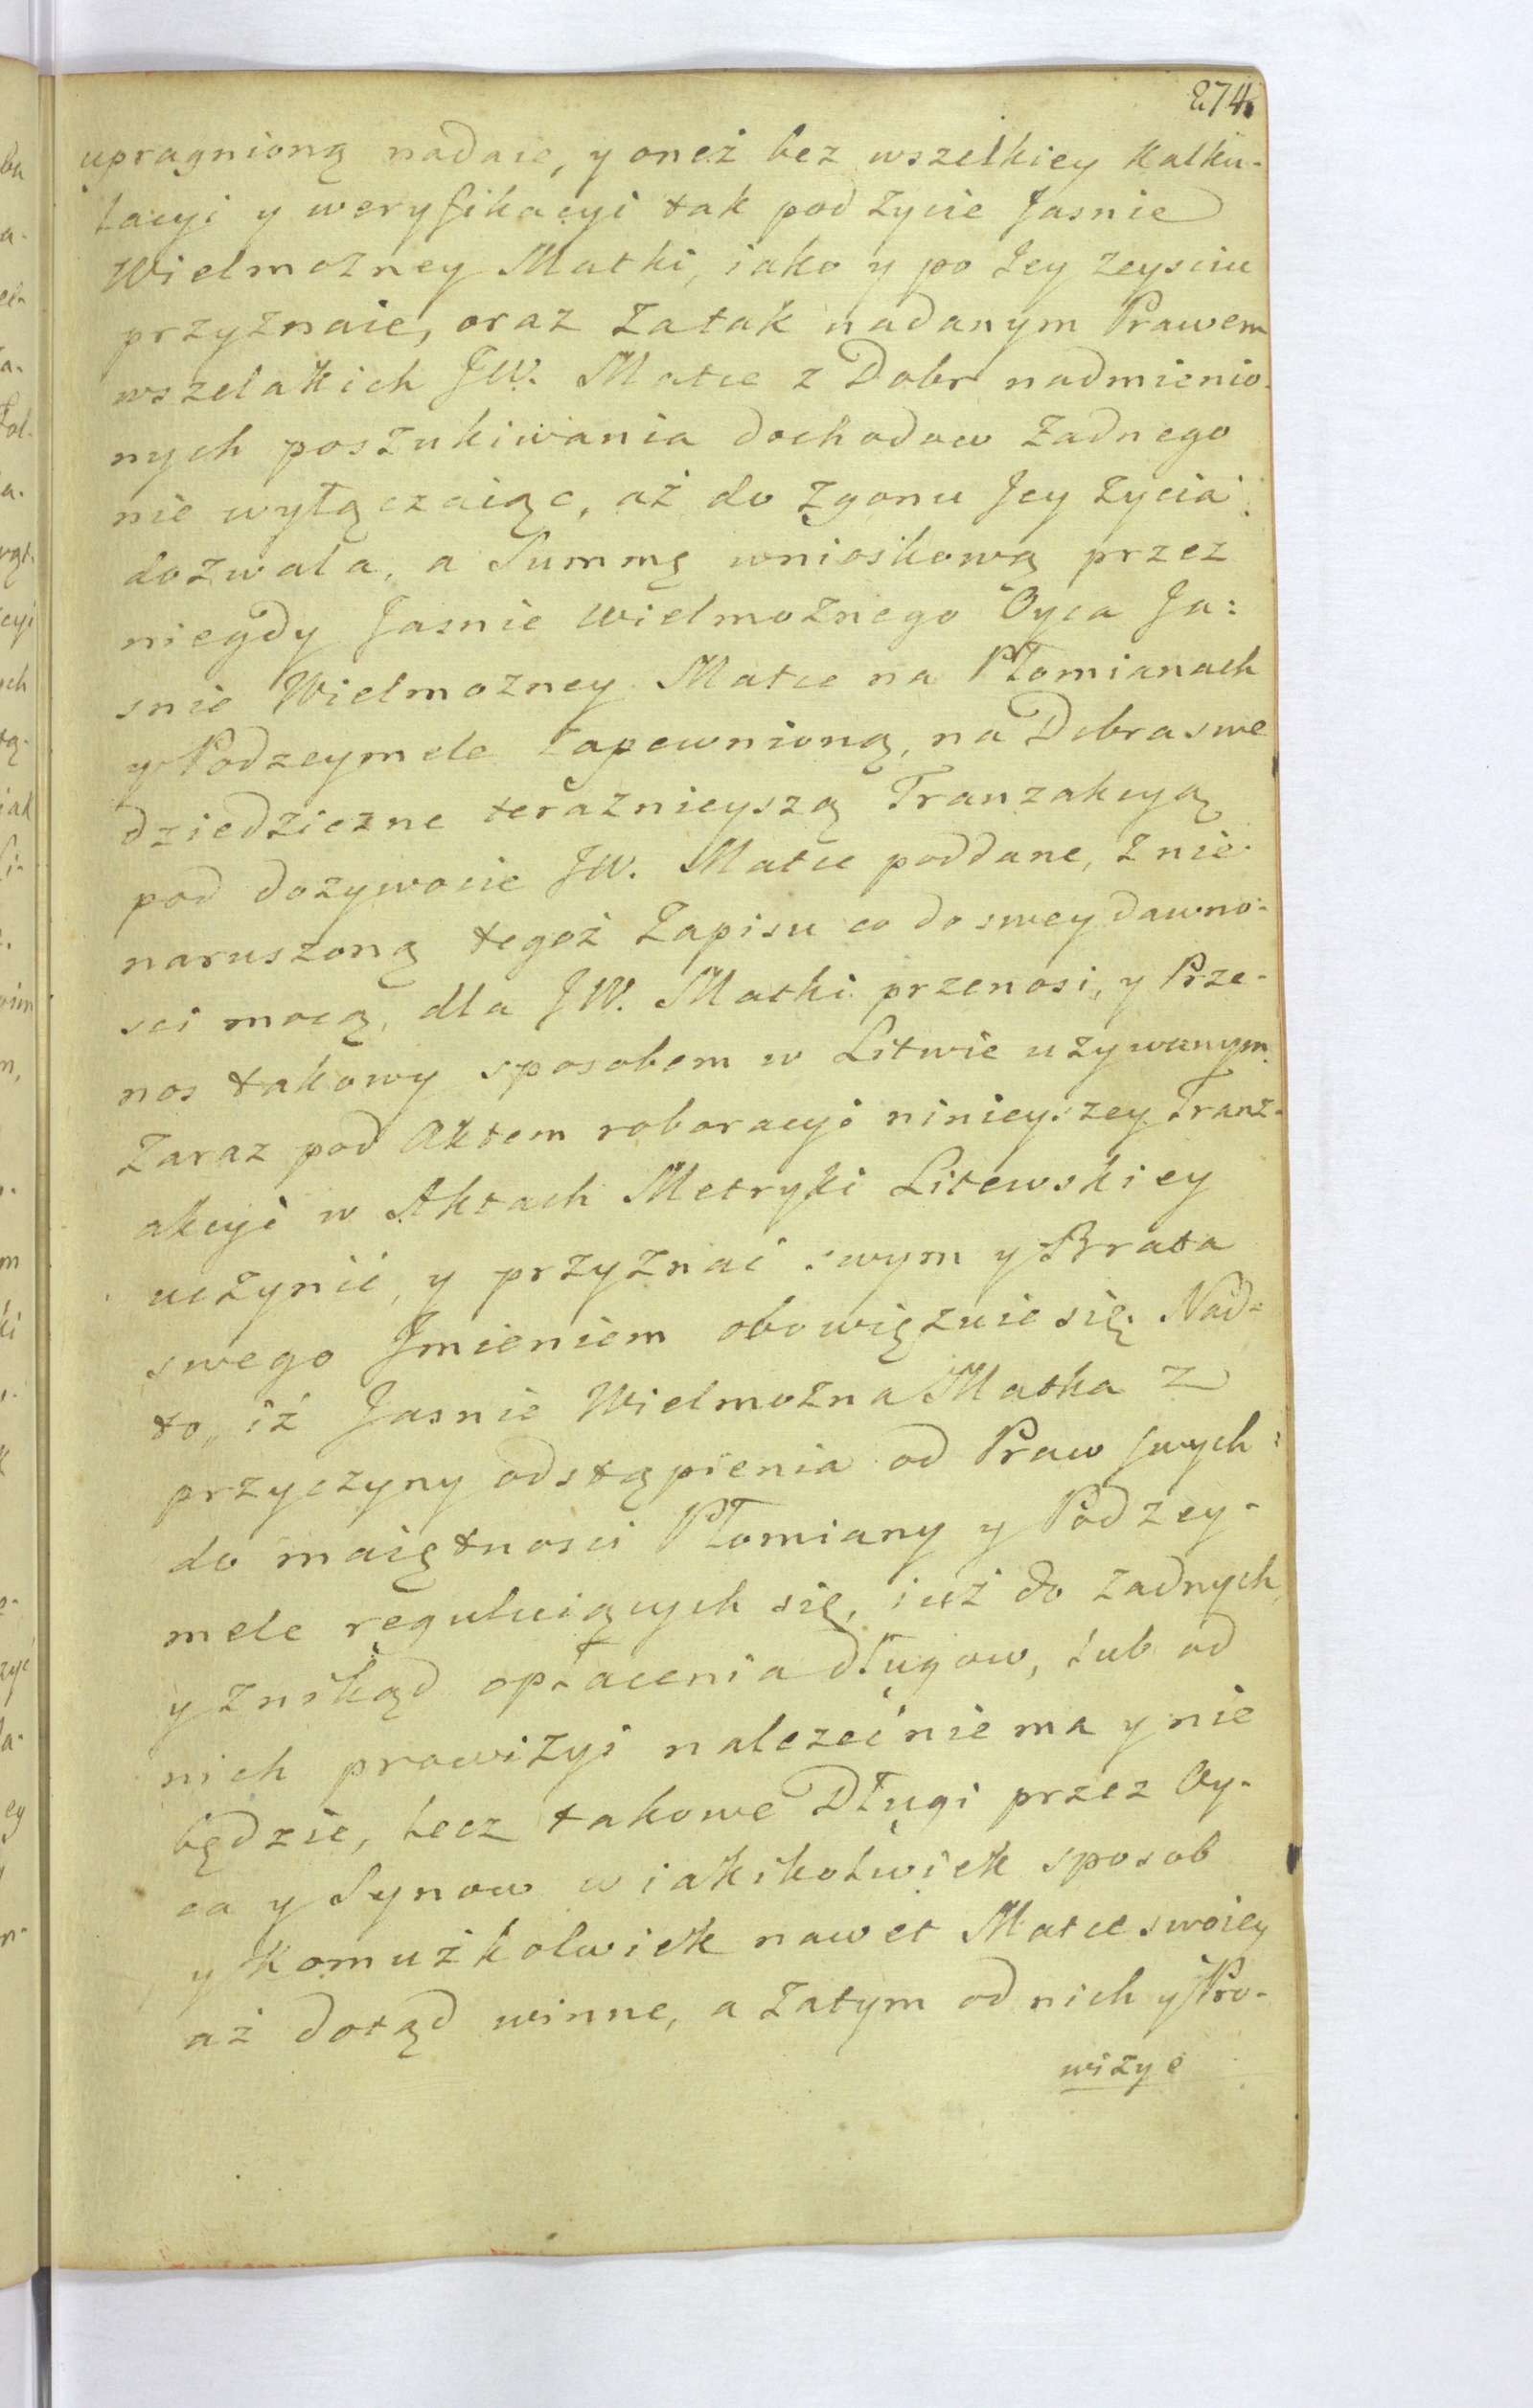 274.
upragnioną nadaie, y oneż bez wszelkiey Kalku-
lacyi y weryfikacyi tak pod życie Jasnie
Wielmożney Matki, iako y po Jey zeysciu
przyznaie, oraz za tak nadanym Prawem
wszelakich JW. Matce z Dobr nadmienio-
nych poszukiwania dochodow żadnego
nie wyłączaiąc, aż do zgonu Jey życia
dozwala, a Summę wnioskową przez
niegdy Jasnie Wielmożnego Oyca Ja:
snie Wielmożney Matce na Płomianach
y Podzeymele zapewnioną, na Dobra swe
dziedziczne teraznieyszą Tranzakcyą
pod dożywocie JW. Matce poddane, z nie-
naruszoną tegoż Zapisu co do swey dawno-
sci mocą, dla JW. Matki przenosi, y Prze-
nos takowy sposobem w Litwie używanym
zaraz pod Aktem roboracyi ninieyszey Tranz-
akcyi w Aktach Metryki Litewskiey
uczynić, y przyznać swym y Brata
swego Jmieniem obowięzuie się. Nad-
to, iż Jasnie Wielmożna Matka z
przyczyny odstąpienia od Praw swych
do maiętnosci Płomiany y Podzey-
mele reguluiących się, iuż do żadnych
y znikąd opłacenia długow, lub od
nich prowizyi należeć nie ma y nie
będzie, lecz takowe Długi przez Oy-
ca y Synow w iakikolwiek sposob
y komużkolwiek nawet Matce swoiey
aż dotąd winne, a zatym od nich y Pro-
wizye